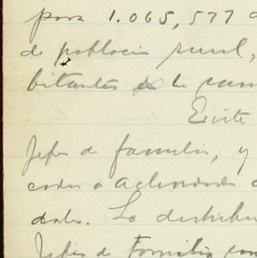 para 1.065,577
de población rural,
bitantes de la cam
Existe
Jefes de familia, y
cados a actividades
dales. La distribu
Jefes de Familia con